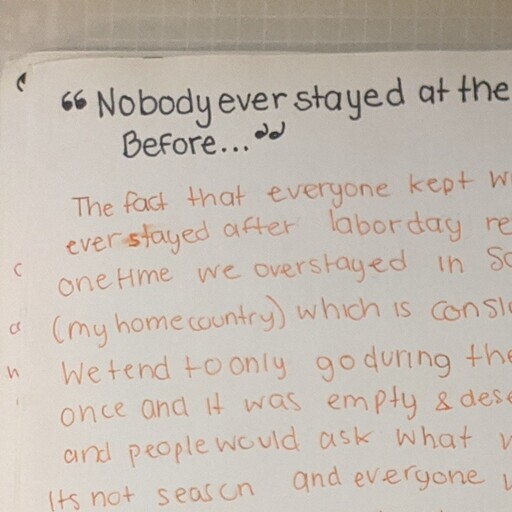 “Nobody ever stayed at the
Before...”
The fact that everyone kept
ever stayed after labor day
one time we overstayed in
(my home country) which is
We tend to only go during the
once and it was empty &
and people would ask what
Its not season and everyone